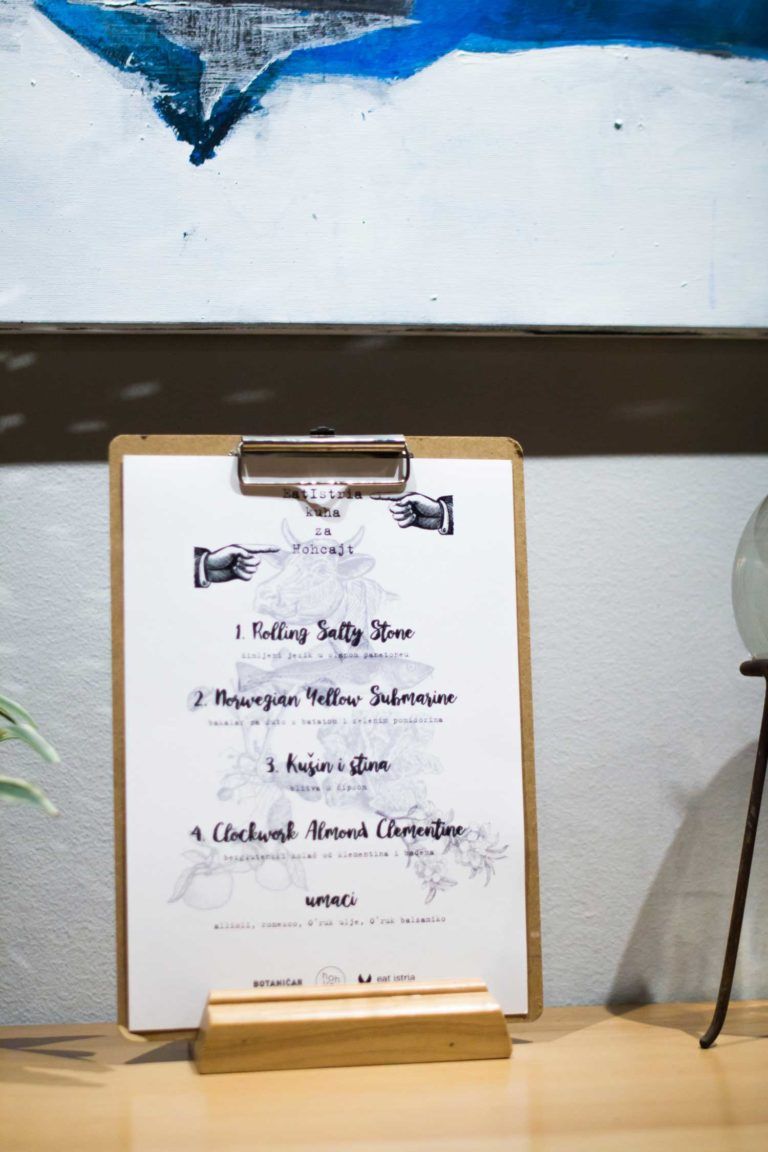 EatIstria
kuha
za
Hohcajt
1. Rolling Salty Stone
jezik u
2. Norwegian Yellow Submarine
bakalar na žuto s batatom i zelenim pomidorima
3. Kušin i ština
blitva u čipson
4. Clockwork Almond Clementine
bezglutenski kolač od klementina i badema
umaci
alioli, romesco, O'ruk ulje, O'ruk balzamiko
BOTANIČAR
eat istria